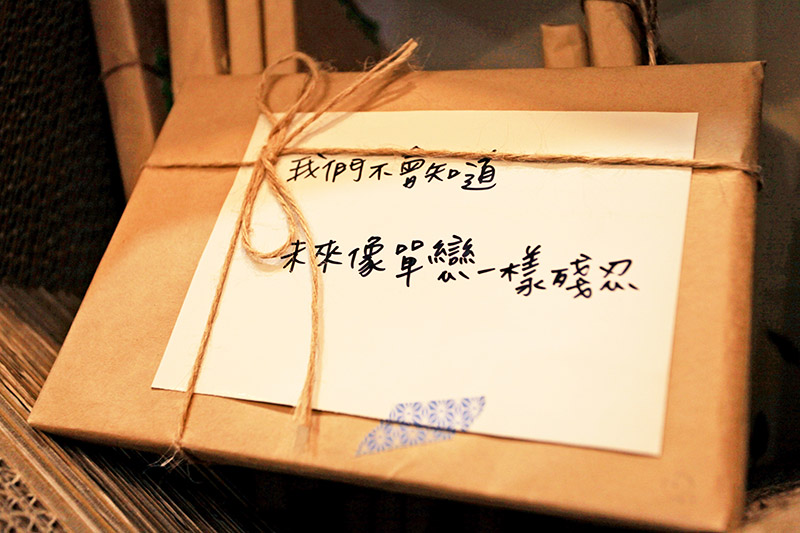 我們不會知道
未來像單戀一樣殘忍